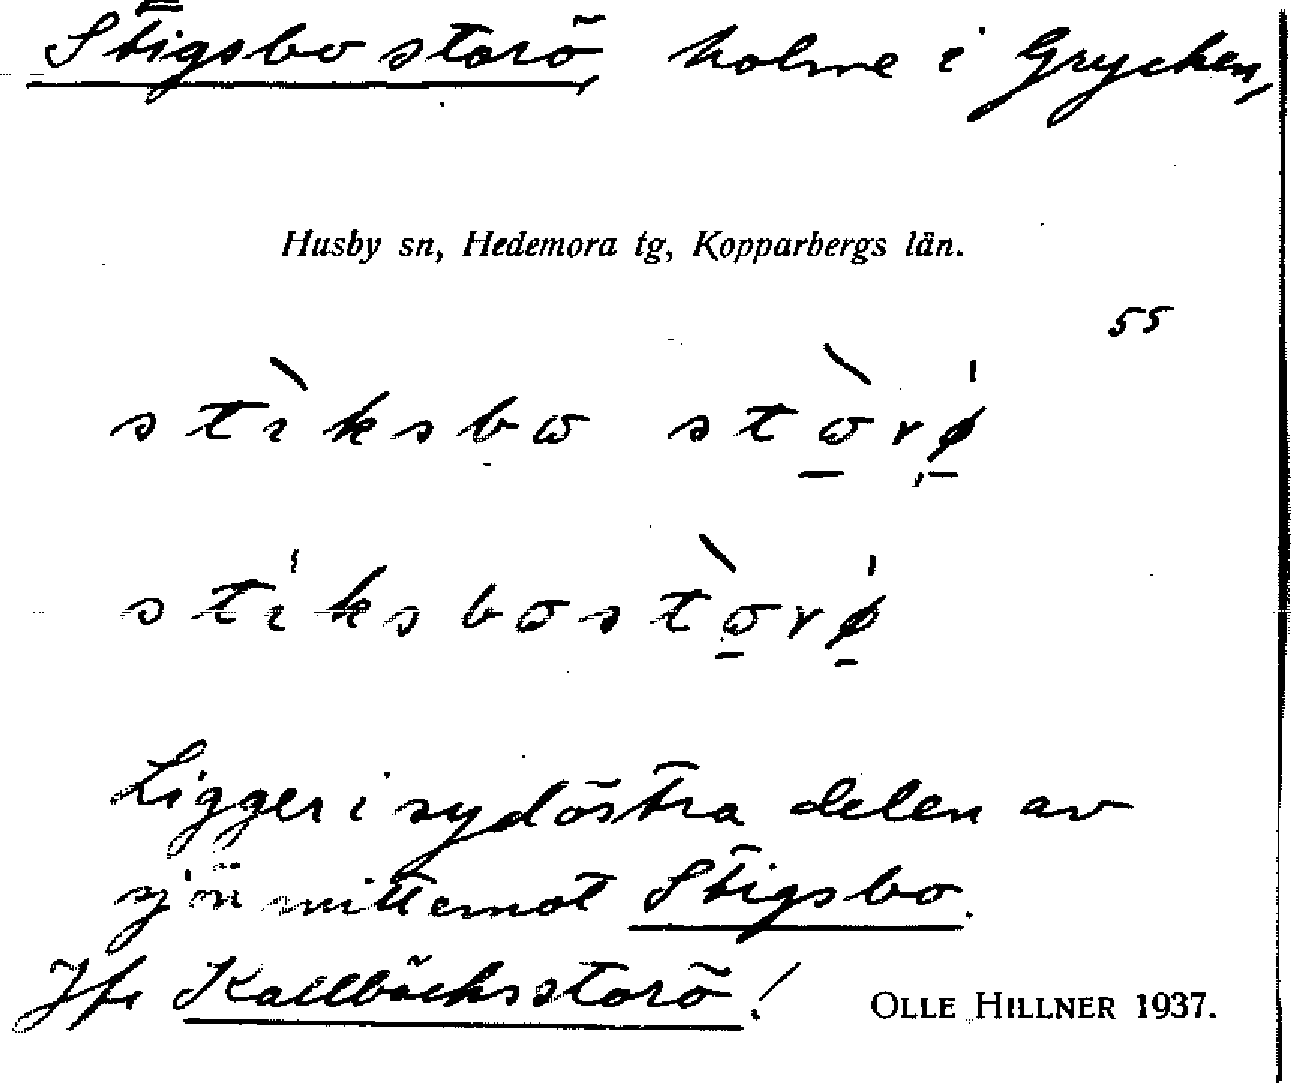 Stigsbo storö, holme i Grycken,
Husby sn, Hedemora tg, Kopparbergs län.
55
stìksbo stòrǿ
stíksbostòrǿ
Ligger i sydöstra delen av
sjön mitt emot Stigsbo.
Jfr Kallbäcksstorö!
OLLE HILLNER 1937.